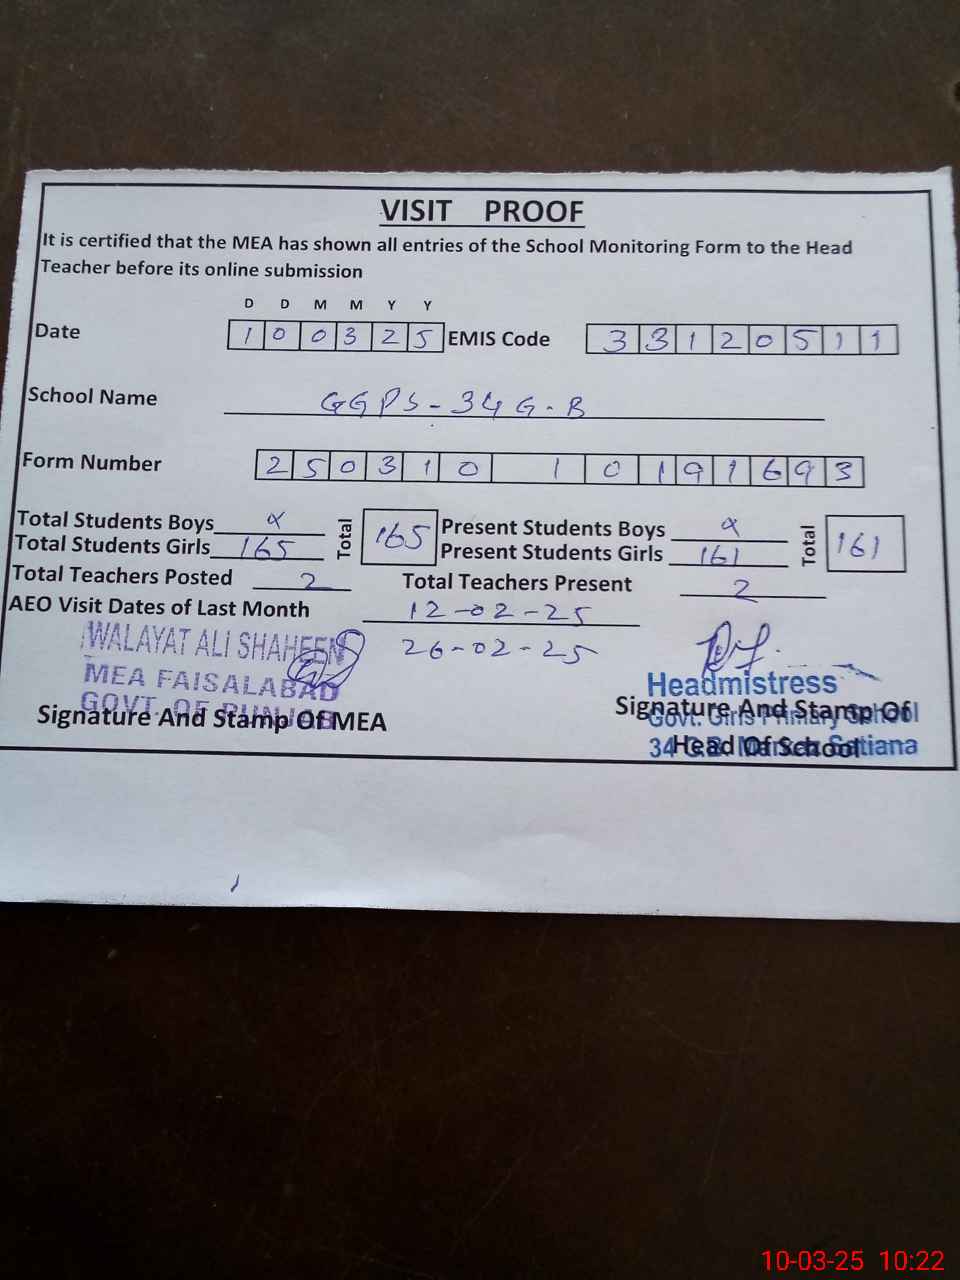 VISIT PROOF
It is certified that the MEA has shown all entries of the School Monitoring Form to the Head
Teacher before its online submission
D D M M Y Y
Date 1 0 0 3 2 5 EMIS Code 3 3 1 2 0 5 1 1
School Name GGPS-34 G.B
Form Number 2 5 0 3 1 0 1 0 1 9 1 6 9 3
Total Students Boys x Total 165 Present Students Boys x Total 161
Total Students Girls 165 Present Students Girls 161
Total Teachers Posted 2 Total Teachers Present 2
AEO Visit Dates of Last Month 12-02-25
26-02-25
WALAYAT ALI SHAHEEN
MEA FAISALABAD
GOVT. OF PUNJAB
Signature And Stamp Of MEA
Headmistress
Govt. Girls Primary School
Signature And Stamp Of
Head Of School
34 G.B. Satiana
10-03-25 10:22